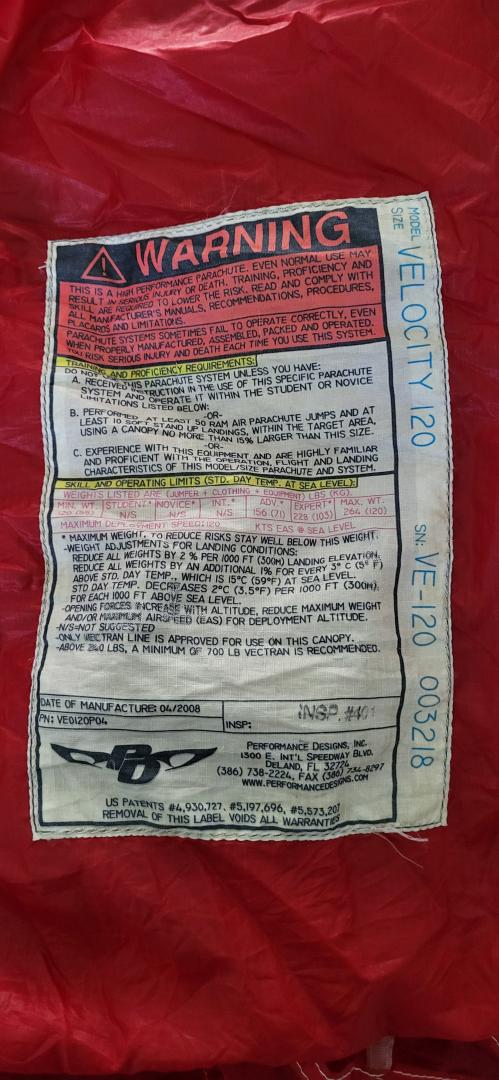 WARNING
THIS IS A HIGH PERFORMANCE PARACHUTE. EVEN NORMAL USE MAY
RESULT IN SERIOUS INJURY OR DEATH. TRAINING, PROFICIENCY AND
SKILL ARE REQUIRED TO LOWER THE RISK. READ AND COMPLY WITH
ALL MANUFACTURER'S MANUALS, RECOMMENDATIONS, PROCEDURES,
PLACARDS AND LIMITATIONS.
PARACHUTE SYSTEMS SOMETIMES FAIL TO OPERATE CORRECTLY, EVEN
WHEN PROPERLY MANUFACTURED, ASSEMBLED, PACKED AND OPERATED.
YOU RISK SERIOUS INJURY AND DEATH EACH TIME YOU USE THIS SYSTEM.
TRAINING AND PROFICIENCY REQUIREMENTS:
DO NOT THIS PARACHUTE SYSTEM UNLESS YOU HAVE:
A. RECEIVED INSTRUCTION IN THE USE OF THIS SPECIFIC PARACHUTE
SYSTEM AND OPERATE IT WITHIN THE STUDENT OR NOVICE
LIMITATIONS LISTED BELOW:
-OR-
B. PERFORMED AT LEAST 50 RAM AIR PARACHUTE JUMPS AND AT
LEAST 10 SOFT STAND UP LANDINGS, WITHIN THE TARGET AREA,
USING A CANOPY NO MORE THAN 15% LARGER THAN THIS SIZE.
-OR-
C. EXPERIENCE WITH THIS EQUIPMENT AND ARE HIGHLY FAMILIAR
AND PROFICIENT WITH THE OPERATION, FLIGHT AND LANDING
CHARACTERISTICS OF THIS MODEL/SIZE PARACHUTE AND SYSTEM.
SKILL AND OPERATING LIMITS (STD. DAY TEMP. AT SEA LEVEL):
WEIGHTS LISTED ARE (JUMPER + CLOTHING + EQUIPMENT) LBS (KG).
MIN. WT. STUDENT* NOVICE* INT.* ADV.* EXPERT* MAX. WT.
N/S N/S N/S 156 (71) 228 (103) 264 (120)
MAXIMUM DEPLOYMENT SPEED: 120 KTS EAS @ SEA LEVEL
* MAXIMUM WEIGHT, TO REDUCE RISKS STAY WELL BELOW THIS WEIGHT.
-WEIGHT ADJUSTMENTS FOR LANDING CONDITIONS:
REDUCE ALL WEIGHTS BY 2 % PER 1000 FT (300M) LANDING ELEVATION.
REDUCE ALL WEIGHTS BY AN ADDITIONAL 1% FOR EVERY 3° C (5° F)
ABOVE STD. DAY TEMP., WHICH IS 15°C (59°F) AT SEA LEVEL.
STD DAY TEMP. DECREASES 2°C (3.5°F) PER 1000 FT (300M)
FOR EACH 1000 FT ABOVE SEA LEVEL.
-OPENING FORCES INCREASE WITH ALTITUDE, REDUCE MAXIMUM WEIGHT
AND/OR MAXIMUM AIRSPEED (EAS) FOR DEPLOYMENT ALTITUDE.
-N/S=NOT SUGGESTED
-ONLY VECTRAN LINE IS APPROVED FOR USE ON THIS CANOPY.
-ABOVE LBS, A MINIMUM OF 700 LB VECTRAN IS RECOMMENDED.
DATE OF MANUFACTURE: 04/2008
PN: VE0120P04
INSP: INSP. #401
PD
PERFORMANCE DESIGNS, INC.
1300 E. INT'L SPEEDWAY BLVD.
DELAND, FL 32724
(386) 738-2224, FAX (386) 734-8297
WWW.PERFORMANCEDESIGNS.COM
US PATENTS #4,930,727, #5,197,696, #5,573,207
REMOVAL OF THIS LABEL VOIDS ALL WARRANTIES
MODEL
SIZE
VELOCITY 120
SN: VE-120 003218